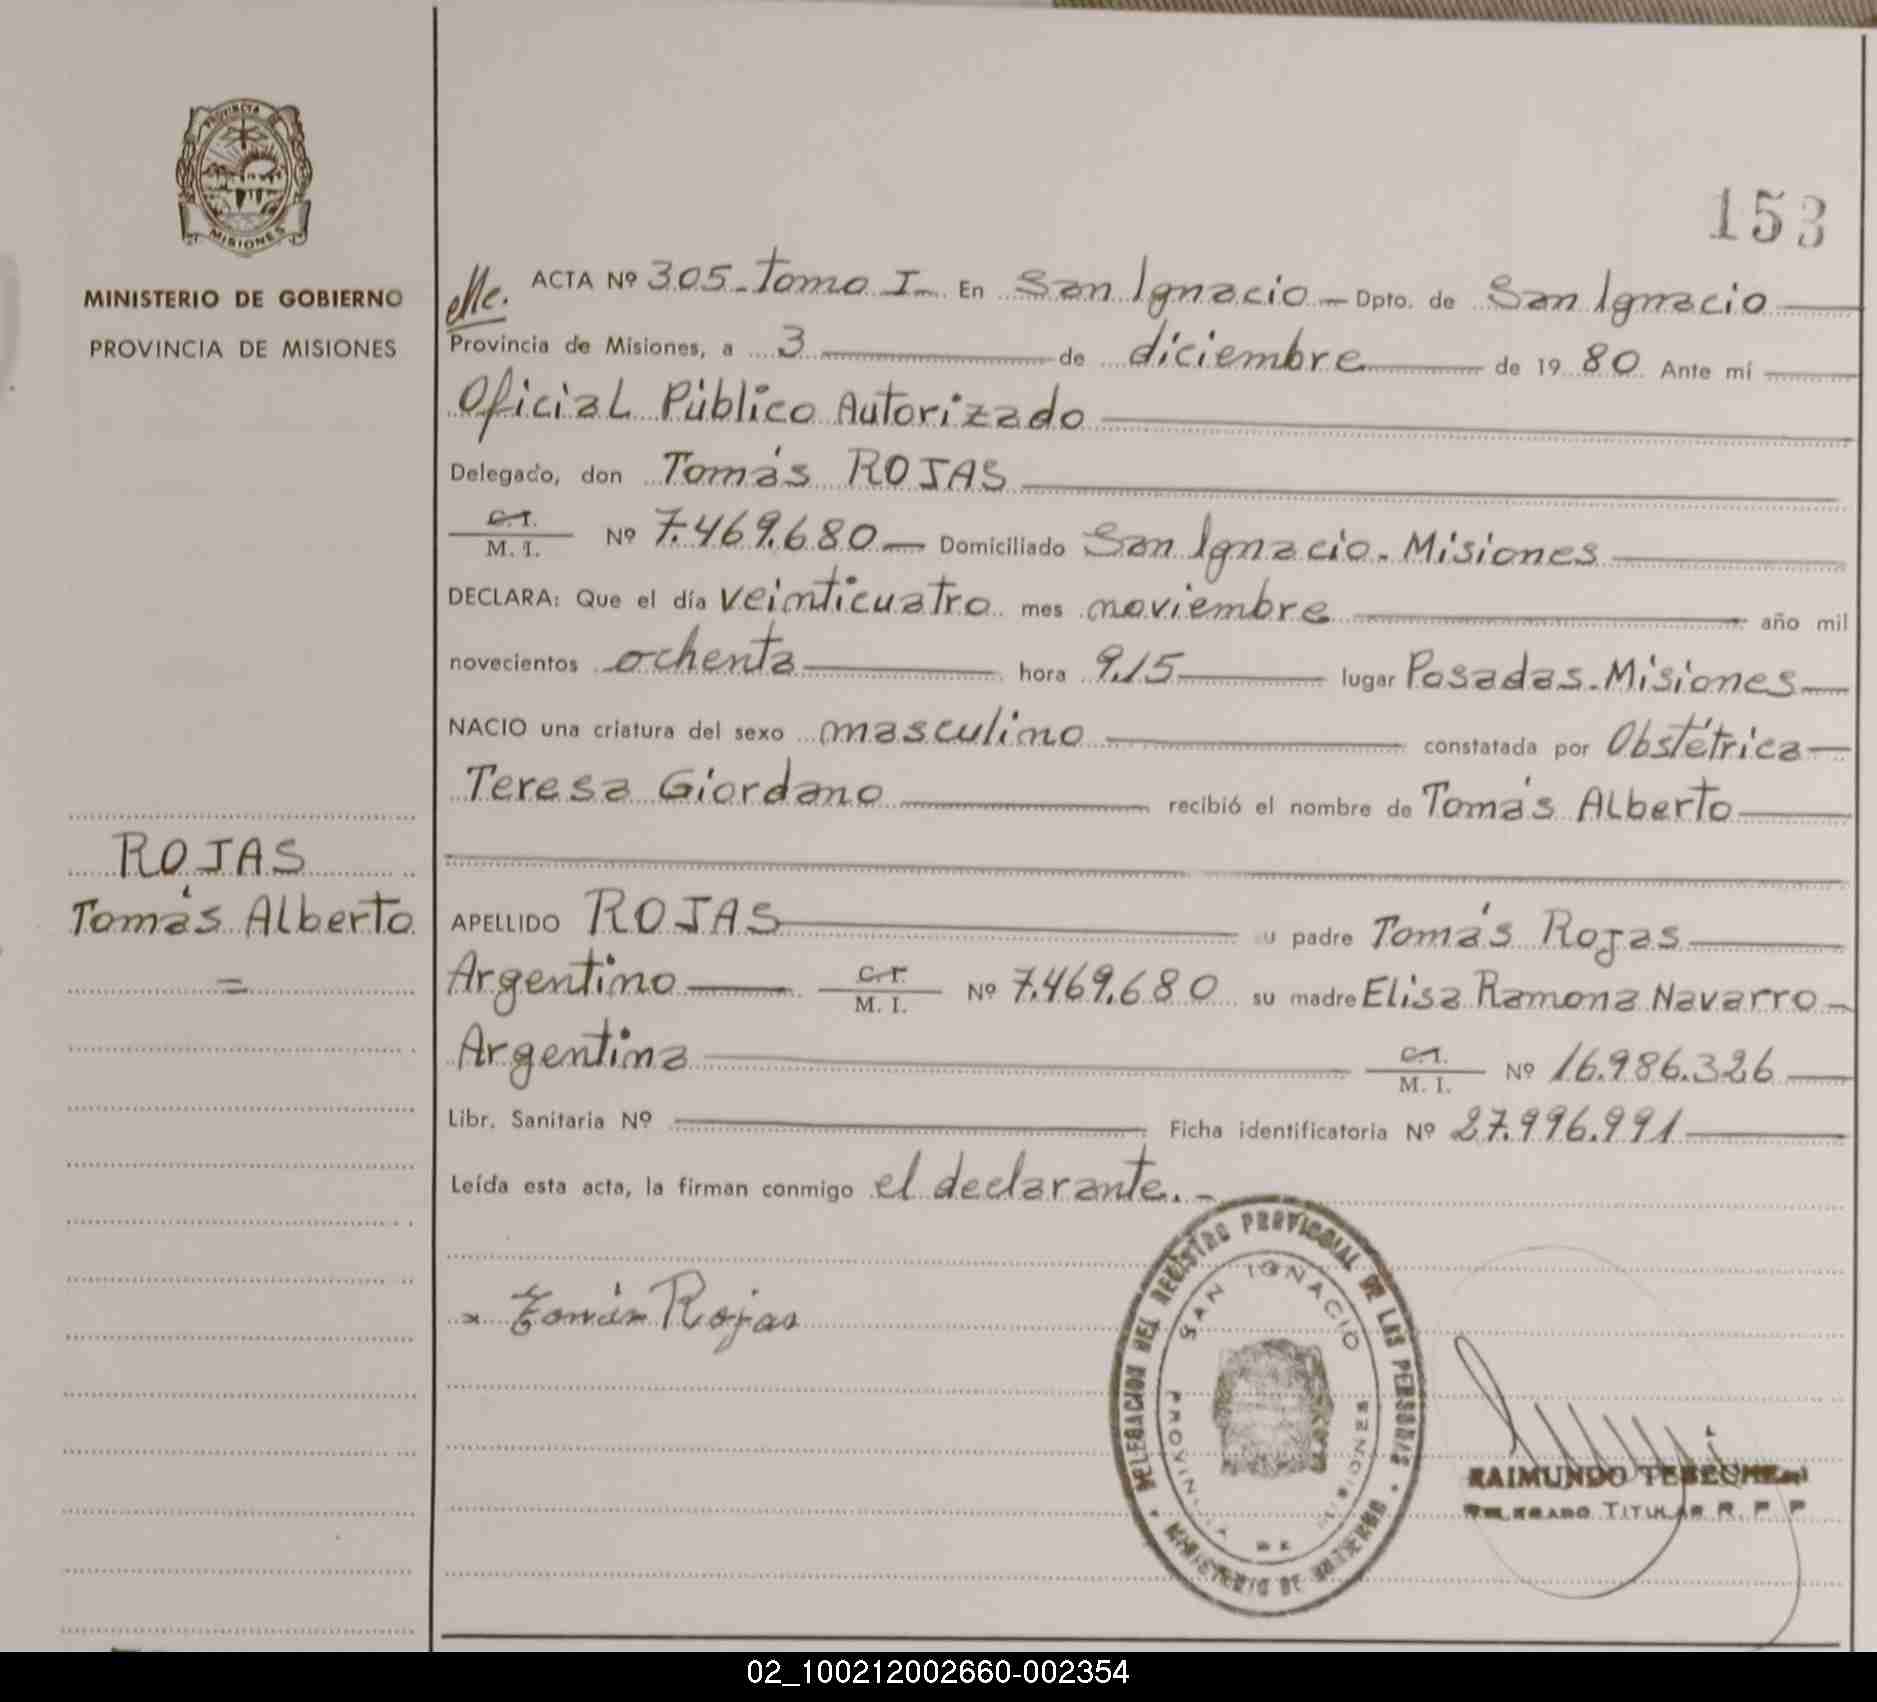 PROVINCIA DE
MISIONES
MINISTERIO DE GOBIERNO
PROVINCIA DE MISIONES
ROJAS
Tomás Alberto
=
153
ACTA Nº 305-Tomo I- En San Ignacio - Dpto. de San Ignacio
Provincia de Misiones, a 3 de diciembre de 1980 Ante mí
Oficial Público Autorizado
Delegado, don Tomás ROJAS
C.I. / M. I. Nº 7.469.680 - Domiciliado San Ignacio - Misiones
DECLARA: Que el día veinticuatro mes noviembre año mil
novecientos ochenta hora 9.15 lugar Posadas - Misiones
NACIO una criatura del sexo masculino constatada por Obstétrica
Teresa Giordano recibió el nombre de Tomás Alberto
APELLIDO ROJAS su padre Tomás Rojas
Argentino C.I. / M. I. Nº 7.469.680 su madre Elisa Ramona Navarro
Argentina C.I. / M. I. Nº 16.986.326
Libr. Sanitaria Nº Ficha identificatoria Nº 27.996.991
Leída esta acta, la firman conmigo el declarante. -
Tomás Rojas
DELEGACION DEL REGISTRO PROVINCIAL DE LAS PERSONAS
SAN IGNACIO
PROVINCIA DE MISIONES
MINISTERIO DE GOBIERNO
RAIMUNDO
DELEGADO TITULAR R. P. P.
02_100212002660-002354